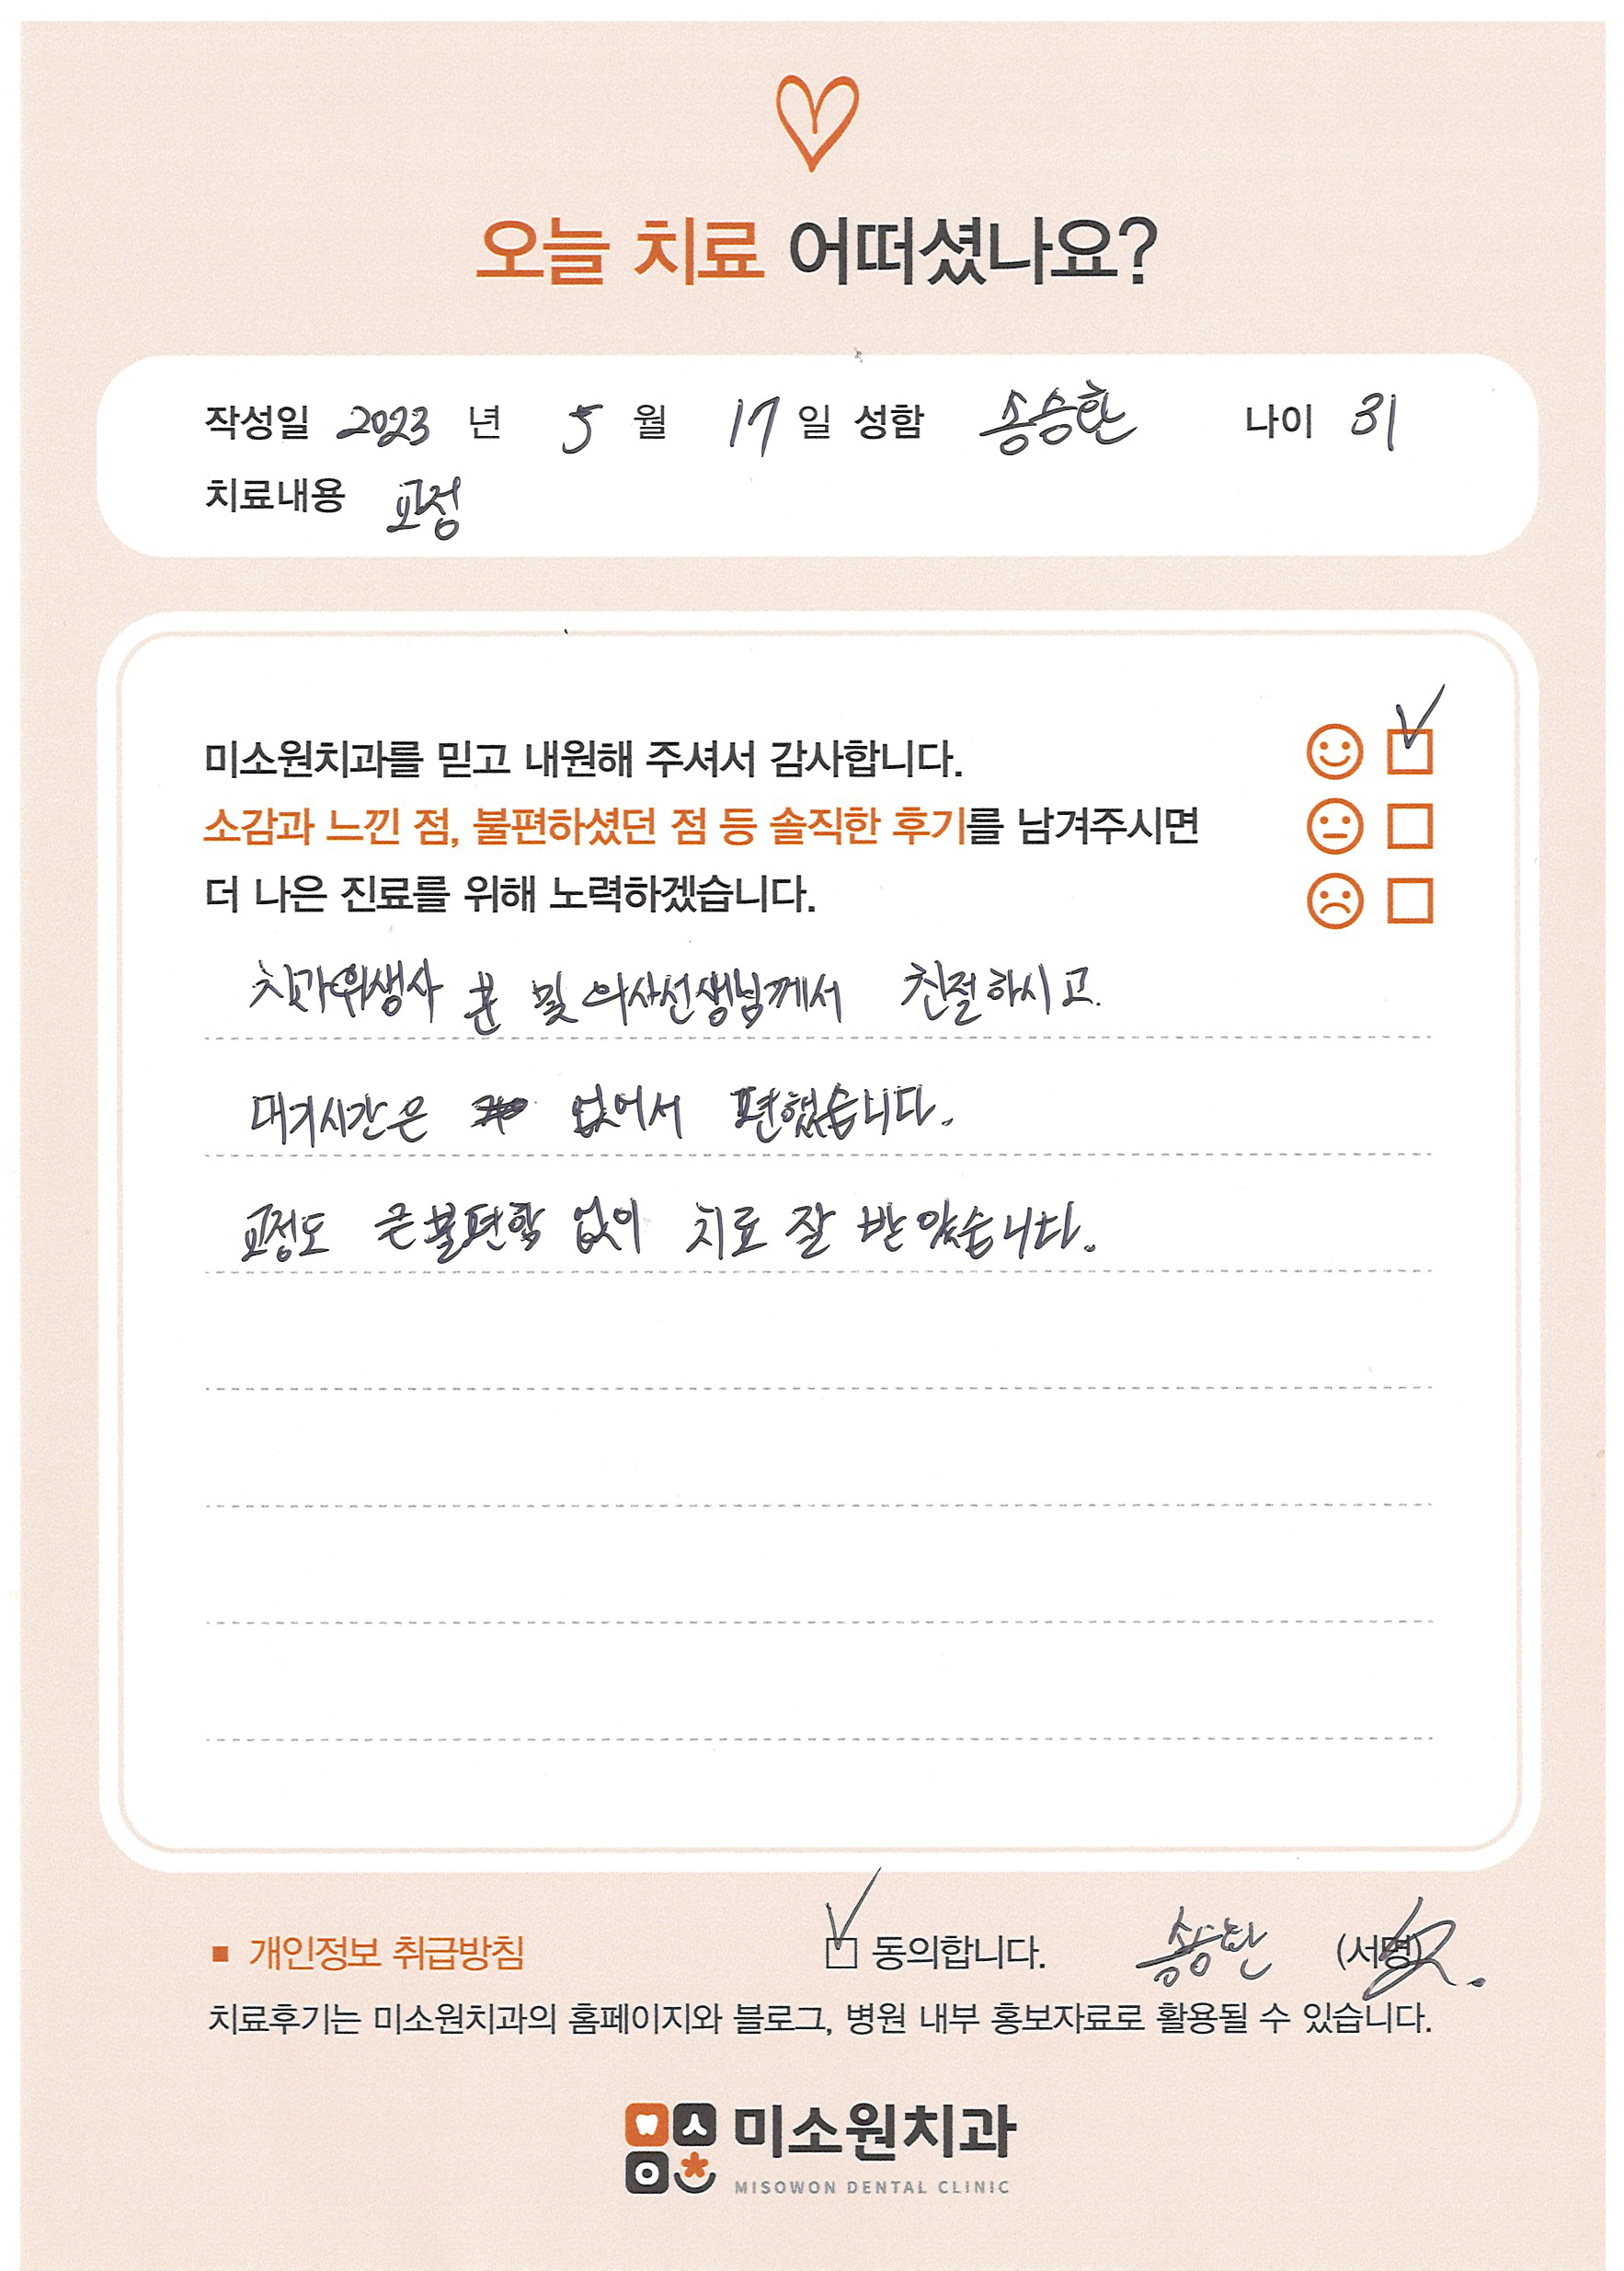 오늘 치료 어떠셨나요?
작성일 2023 년 5 월 17 일 성함 송승환 나이 31
치료내용 교정
미소원치과를 믿고 내원해 주셔서 감사합니다.
소감과 느낀 점, 불편하셨던 점 등 솔직한 후기를 남겨주시면
더 나은 진료를 위해 노력하겠습니다.
치과위생사 분 및 의사선생님께서 친절하시고.
대기시간은 없어서 편했습니다.
교정도 큰불편함 없이 치료 잘 받았습니다.
■ 개인정보 취급방침 동의합니다. 송승환 (서명)
치료후기는 미소원치과의 홈페이지와 블로그, 병원 내부 홍보자료로 활용될 수 있습니다.
미소원치과
MISOWON DENTAL CLINIC